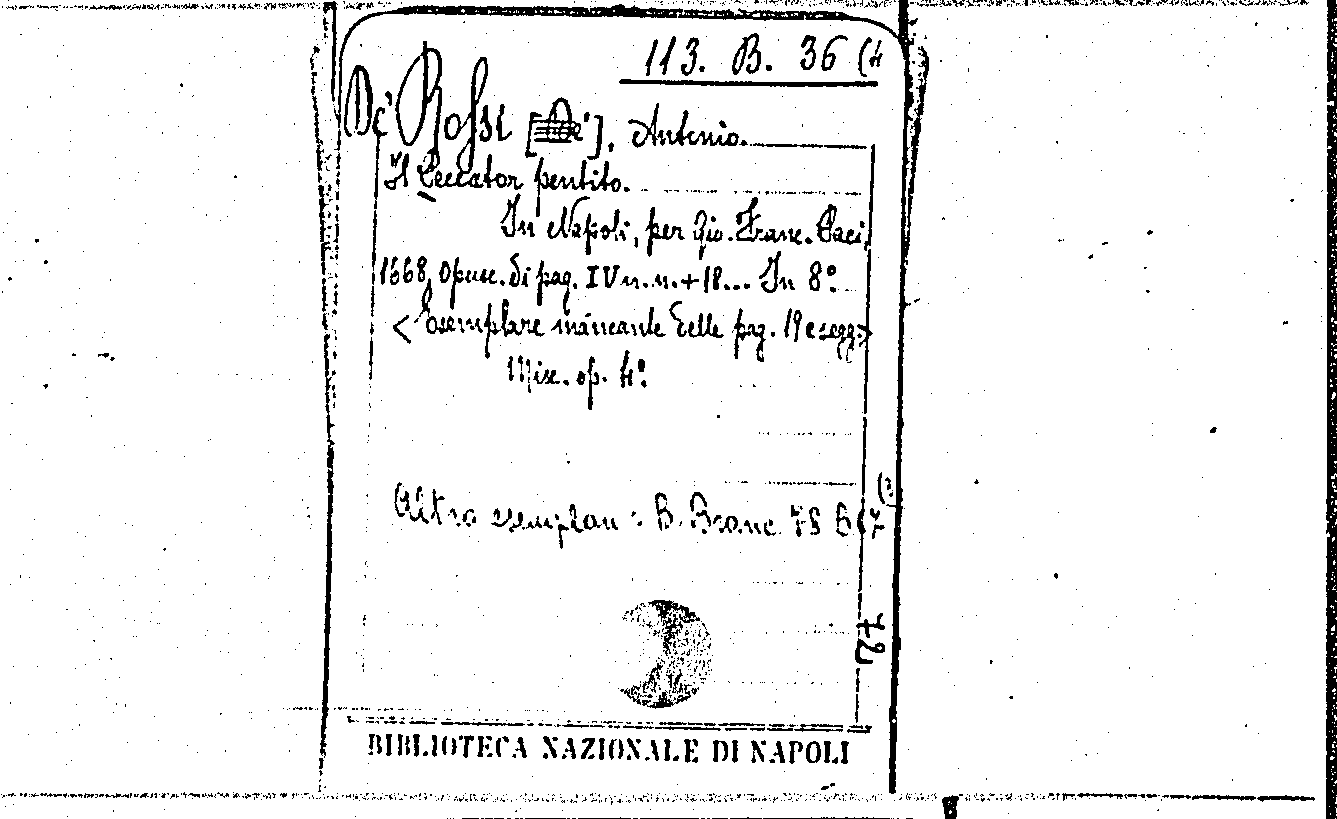 113. B. 36 (4
De' Rossi [De'], Antonio.
Il Peccator pentito.
In Napoli, per Gio. Franc. Paci,
1668, Opusc. di pag. IV n. n. + 18... In 8º
<Esemplare mancante delle pag. 19 e segg.>
Misc. op. 4º.
(3
Altro esemplare: B. Branc. 78 B (7
72
BIBLIOTECA NAZIONALE DI NAPOLI